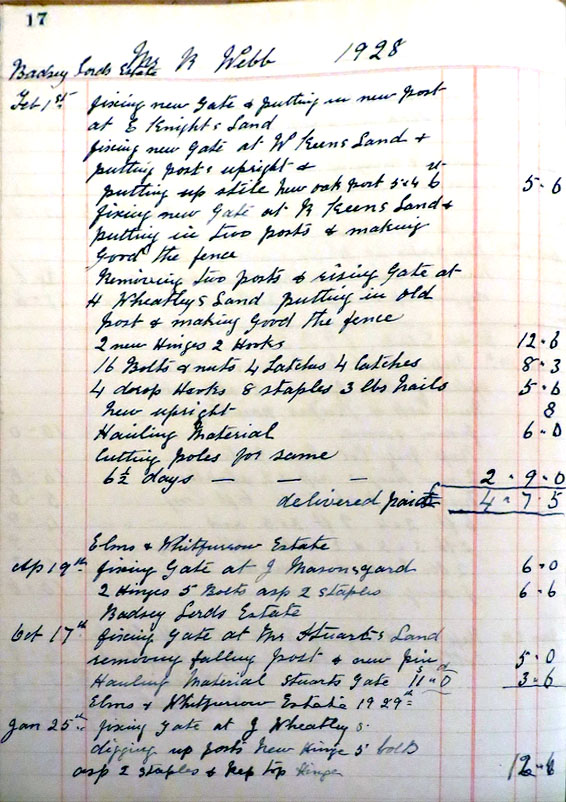 17
Mr R Webb 1928
Badsey Lords Estate
Feb 1st fixing new Gate & putting in new Post
at E Knights Land
fixing new Gate at W Keens Land &
putting posts upright &
putting up stile New oak post 5-4 6d 5-6
fixing new Gate at R Keens Land &
putting in two posts & making
Good the fence
Removing two posts & rising Gate at
H Wheatleys Land putting in old
Post & making Good the fence
2 new Hinges 2 Hooks 12-6
16 Bolts & nuts 4 Latches 4 Catches 8-3
4 drop Hooks 8 staples 3 lbs Nails 5-6
New upright 8
Hauling Material 6-0
Cutting poles for same
6½ days — — — 2-9-0
delivered paid £ 4-7-5
Elms & Whitfurrow Estate
Ap 19th fixing Gate at J Masons yard 6-0
2 Hinges 5 Bolts asp 2 staples 6-6
Badsey Lords Estate
Oct 17th fixing Gate at Mr Stuarts Land
removing falling Post & new pin 5-0
Hauling Material Stuarts Gate 11-0 3-6
Elms & Whitfurrow Estate 1929
Jan 25th fixing Gate at J Wheatleys
digging up posts New Hinge 5 bolts
asp 2 staples & top Hinge 12-6